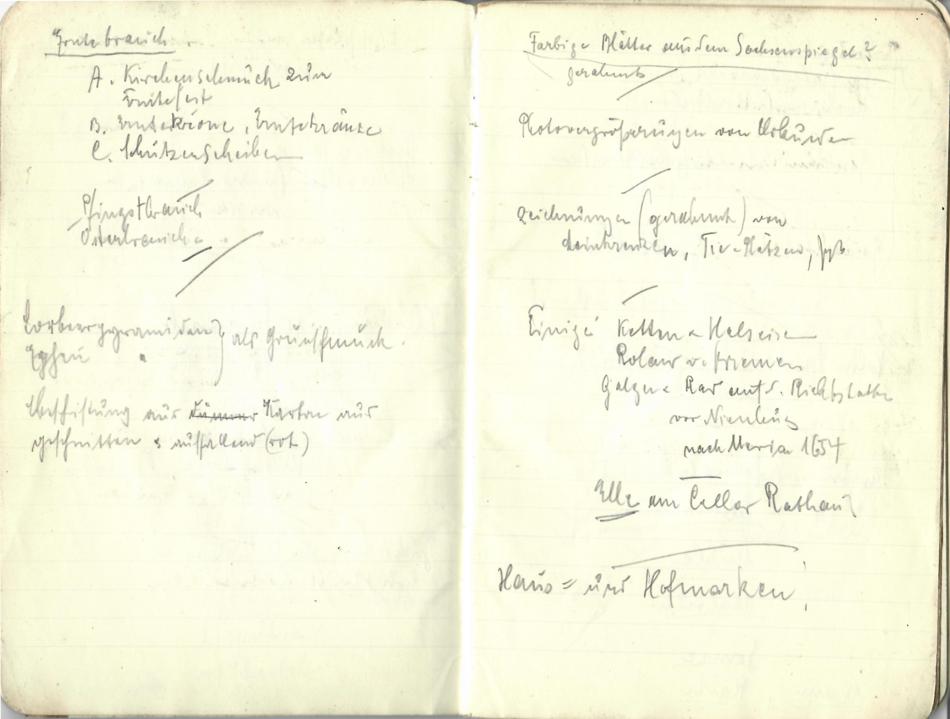 Erntebrauch.
A. Kirchenschmuck zum
Erntefest
B. Erntekrone, Erntekränze
C. Schützenscheiben
Pfingstbrauch
Osterbrauch
Lorbeerpyramiden } als Grünschmuck.
Epheu "
Beschriftung aus Karton aus
geschnitten & auffallend (rot)
Farbige Blätter aus dem Sachsenspiegel?
gerahmt
Photovergrößerungen von Urkunden
Zeichnungen (gerahmt) von
Steinkreuzen, Tie-Plätzen,
Einige Ketten & Halseisen
Roland v. Bremen
Galgen & Rad auf d. Richtstätte
vor Nienburg
nach Merian 1654
Elle am Celler Rathaus
Haus= und Hofmarken,